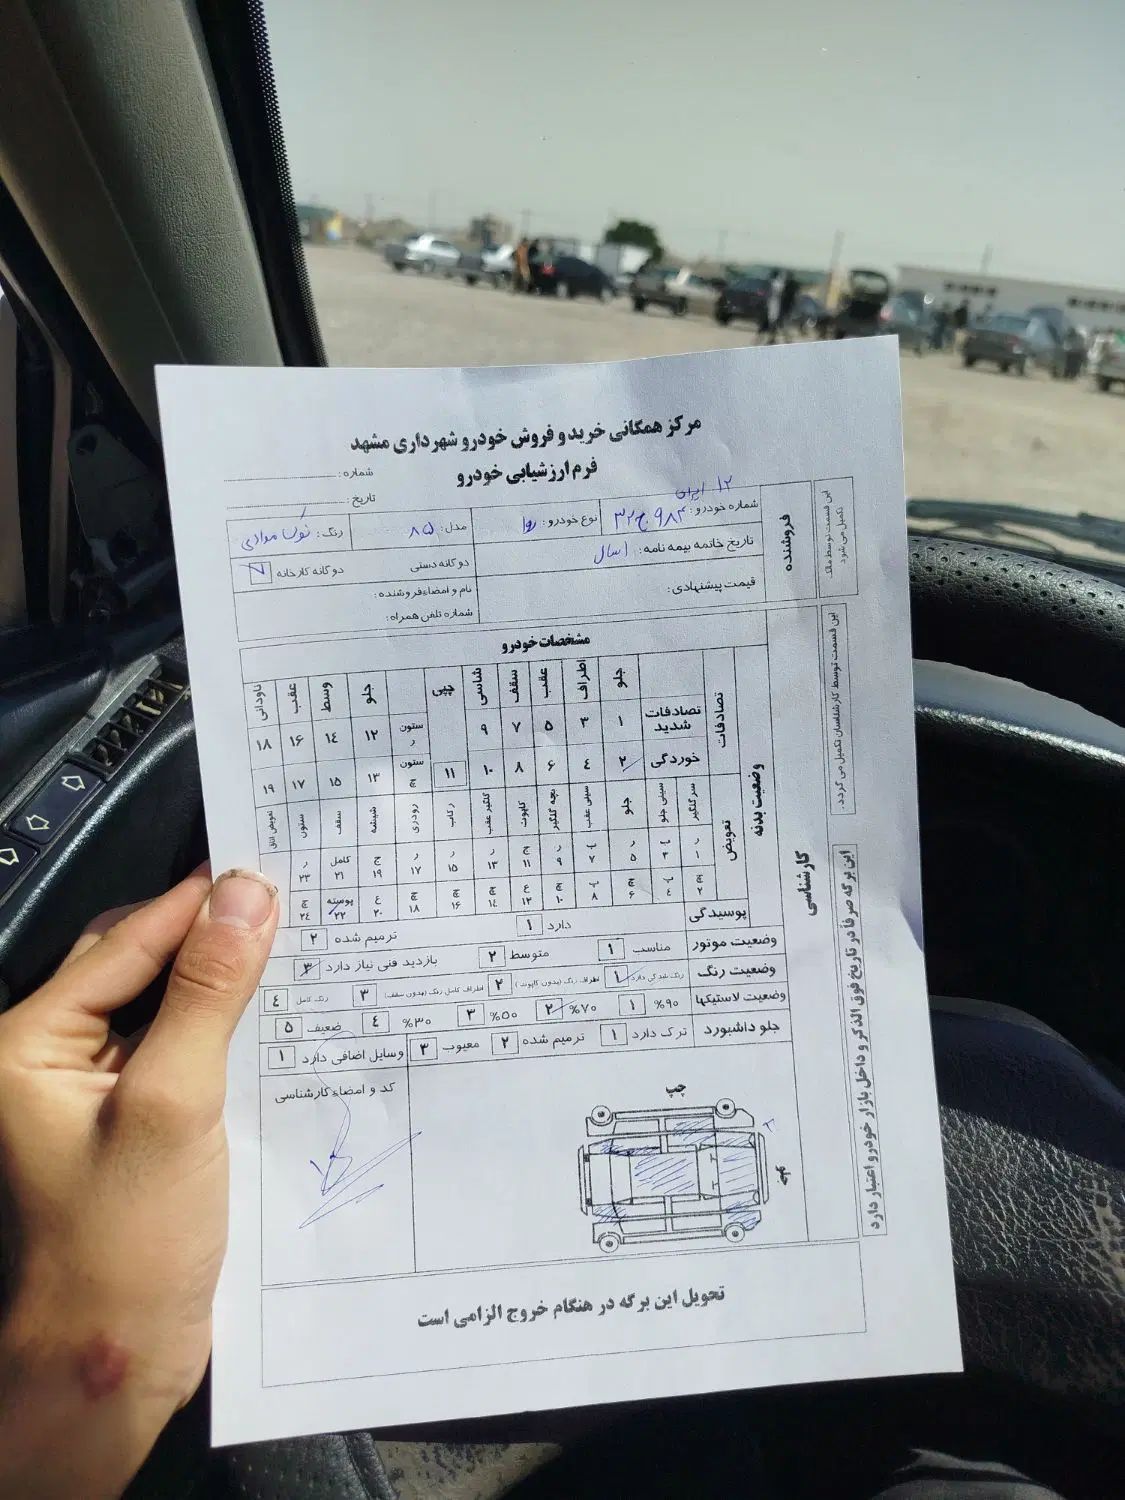 مرکز همگانی خرید و فروش خودرو شهرداری مشهد
فرم ارزشیابی خودرو
شماره :
تاریخ :
این قسمت توسط مالک تکمیل می شود
فروشنده
شماره خودرو : ۹۸۴ ج ۳۲ ایران ۱۲
نوع خودرو : روا
مدل : ۸۵
رنگ : نوک مدادی
تاریخ خاتمه بیمه نامه : ۱ سال
دوگانه دستی
دوگانه کارخانه
قیمت پیشنهادی :
نام و امضاء فروشنده :
شماره تلفن همراه :
این قسمت توسط کارشناسان تکمیل می گردد .
کارشناسی
مشخصات خودرو
وضعیت بدنه
تصادفات
جلو اطراف عقب سقف شاسی جلو وسط عقب ناودانی
تصادفات شدید ۱ ۳ ۵ ۷ ۹ ستون ر ۱۲ ۱۴ ۱۶ ۱۸
خوردگی ۲ ۴ ۶ ۸ ۱۰ ۱۱ ستون چ ۱۳ ۱۵ ۱۷ ۱۹
تعویض
سرگلگیر سینی جلو جلو سینی عقب بچه گلگیر کاپوت گلگیر عقب رکاب رودری شیشه سقف ستون تعویض اتاق
ر ۱ ۳ ر ۵ ۷ ر ۹ ج ۱۱ ر ۱۳ ر ۱۵ ر ۱۷ ج ۱۹ کامل ۲۱ ر ۲۳
چ ۲ ۴ چ ۶ ۸ چ ۱۰ ع ۱۲ چ ۱۴ چ ۱۶ چ ۱۸ ع ۲۰ پوسته ۲۲ چ ۲۴
پوسیدگی دارد ۱ ترمیم شده ۲
وضعیت موتور مناسب ۱ متوسط ۲ بازدید فنی نیاز دارد ۳
وضعیت رنگ رنگ شدگی دارد ۱ اطراف رنگ (بدون کاپوت) ۲ اطراف کامل رنگ (بدون سقف) ۳ رنگ کامل ۴
وضعیت لاستیکها %۹۰ ۱ %۷۰ ۲ %۵۰ ۳ %۳۰ ۴ ضعیف ۵
جلو داشبورد ترک دارد ۱ ترمیم شده ۲ معیوب ۳ وسایل اضافی دارد ۱
کد و امضاء کارشناسی
چپ
این برگه صرفاً در تاریخ فوق الذکر و داخل بازار خودرو اعتبار دارد
تحویل این برگه در هنگام خروج الزامی است